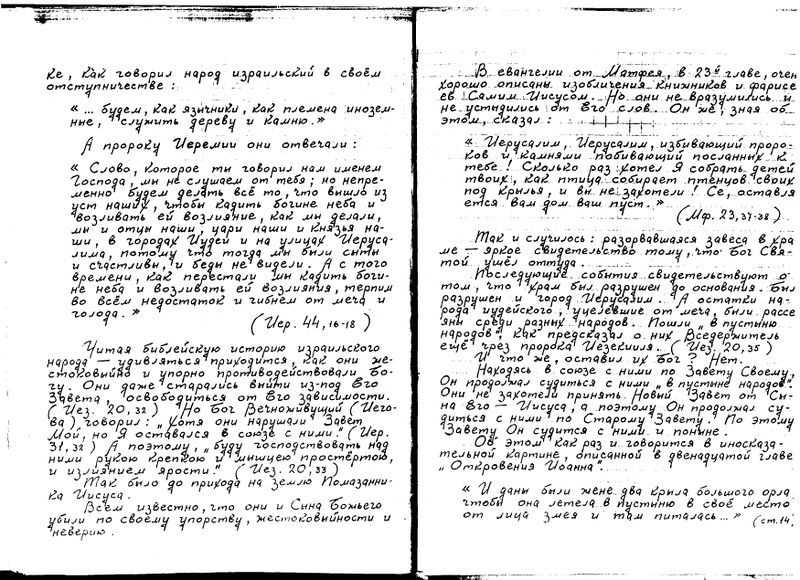 ке, как говорил народ израильский в своём
отступничестве:
« ... будем, как язычники, как племена инозем-
ные, служить дереву и камню.»
А пророку Иеремии они отвечали:
« Слово, которое ты говорил нам именем
Господа, мы не слушаем от тебя; но непре-
менно будем делать всё то, что вышло из
уст наших, чтобы кадить богине неба и
возливать ей возлияние, как мы делали,
мы и отцы наши, цари наши и князья на-
ши, в городах Иудеи и на улицах Иеруса-
лима, потому что тогда мы были сыты
и счастливы, и беды не видели. А с того
времени, как перестали мы кадить боги-
не неба и возливать ей возлияния, терпим
во всём недостаток и гибнем от меча и
голода. »
(Иер. 44, 16-18)
Читая библейскую историю израильского
народа — удивляться приходится, как они же-
стоковыйно и упорно противодействовали Бо-
гу. Они даже старались выйти из-под Его
Завета, освободиться от Его зависимости.
(Иез. 20, 32) Но Бог Вечноживущий (Иего-
ва) говорил: „Хотя они нарушали Завет
Мой, но Я оставался в союзе с ними." (Иер.
31, 32) И поэтому, „буду господствовать над
ними рукою крепкою и мышцею простёртою,
и излиянием ярости." (Иез. 20, 33)
Так было до прихода на землю Помазанни-
ка Иисуса.
Всем известно, что они и Сына Божьего
убили по своему упорству, жестоковыйности и
неверию.
В евангелии от Матфея, в 23й главе, очен
хорошо описаны изобличения книжников и фарисе
ев Самим Иисусом. Но они не вразумились и
не устыдились от Его слов. Он же, зная об
этом, сказал:
« Иерусалим, Иерусалим, избивающий проро-
ков и камнями побивающий посланных к
тебе! Сколько раз хотел Я собрать детей
твоих, как птица собирает птенцов своих
под крылья, и вы не захотели! Се, оставля
ется вам дом ваш пуст.»
(Мф. 23, 37-38)
Так и случилось: разорвавшаяся завеса в хра
ме — яркое свидетельство тому, что Бог Свя-
той ушёл оттуда.
Последующие события свидетельствуют о
том, что храм был разрушен до основания. Был
разрушен и город Иерусалим. А остатки на-
рода иудейского, уцелевшие от меча, были рассе
яны среди разных народов. Пошли „в пустыню
народов" как предсказал о них Вседержитель
ещё чрез пророка Иезекииля. (Иез. 20, 35)
И что же, оставил их Бог? Нет.
Находясь в союзе с ними по Завету Своему,
Он продолжал судиться с ними „в пустыне народов".
Они не захотели принять Новый Завет от Сы-
на Его — Иисуса, а поэтому Он продолжал су-
диться с ними по Старому Завету. По этому
Завету Он судится с ними и поныне.
Об этом как раз и говорится в иносказа-
тельной картине, описанной в двенадцатой главе
„Откровения Иоанна".
« И даны были жене два крыла большого орла
чтобы она летела в пустыню в своё место
от лица змея и там питалась...» (ст.14)